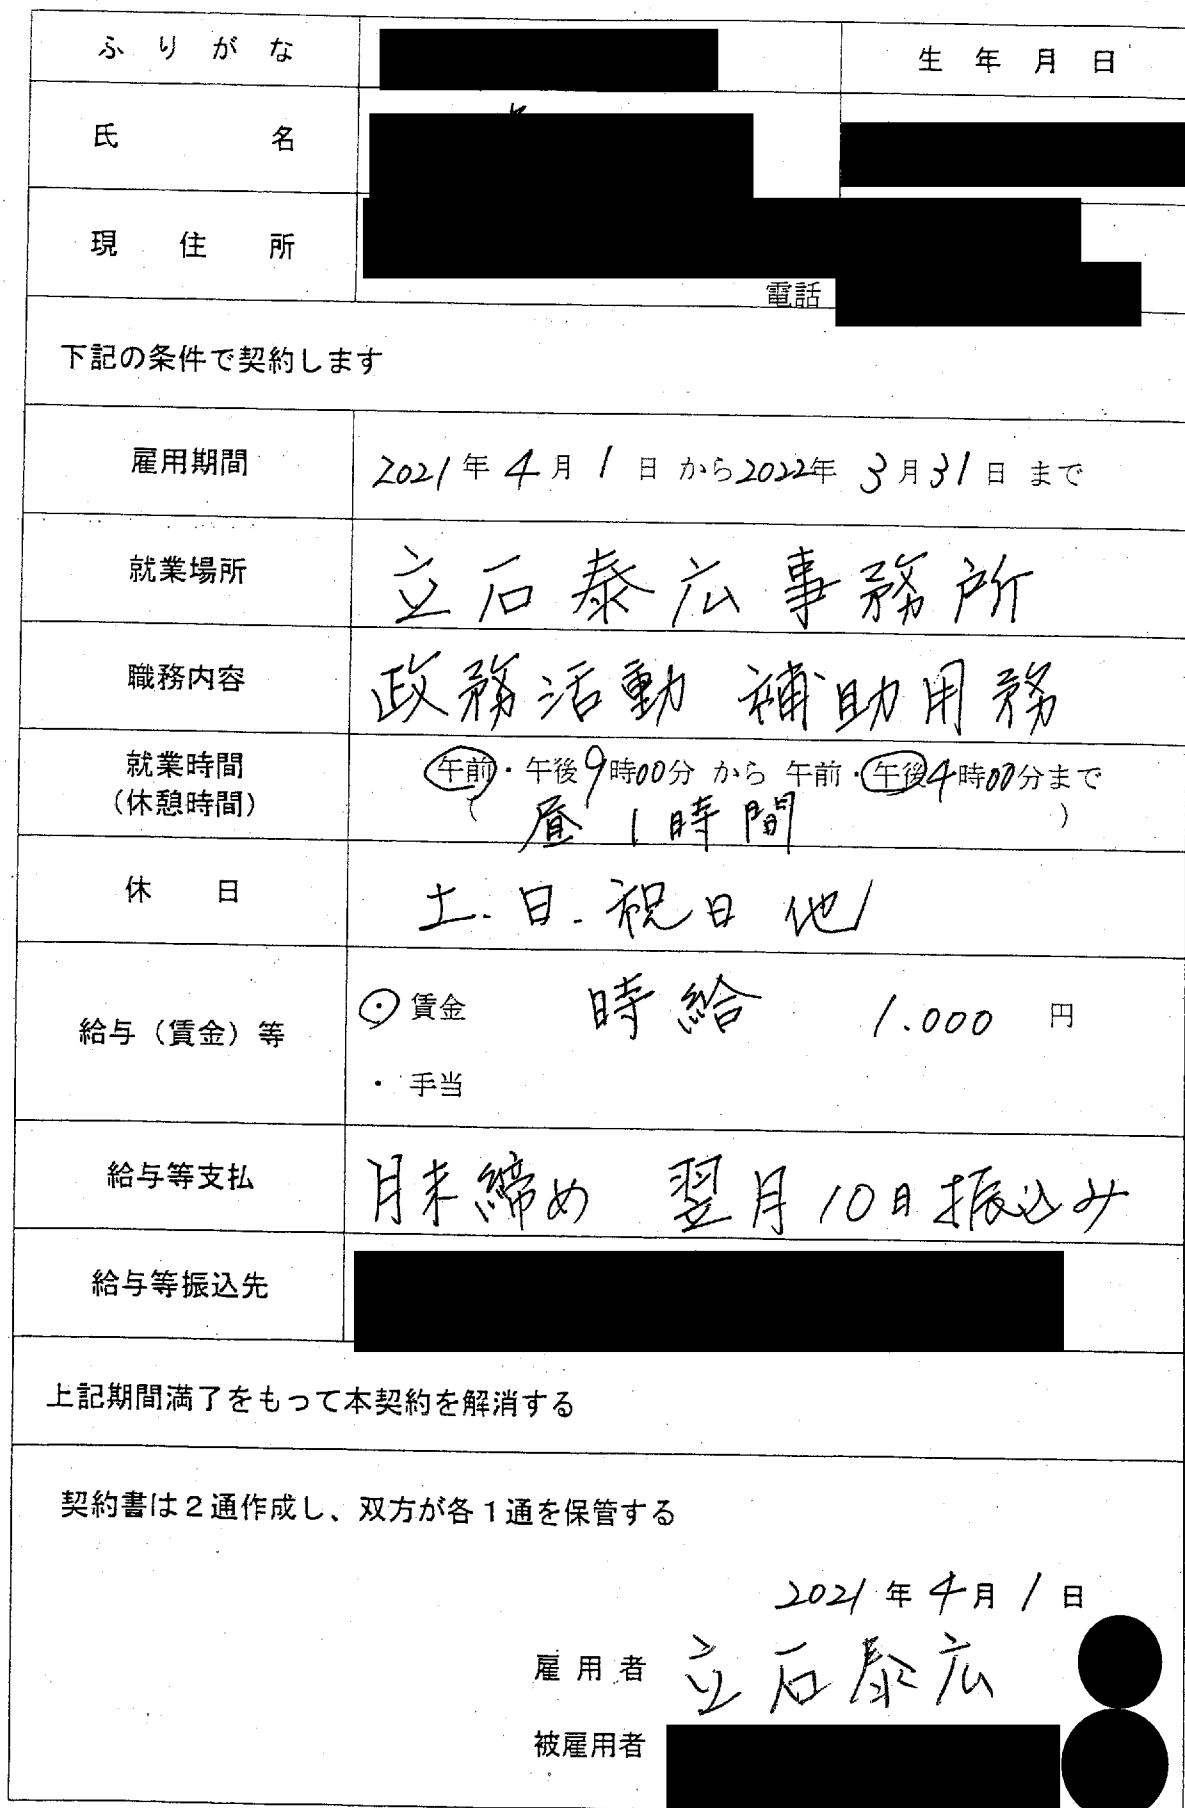 ふりがな
生年月日
氏名
現住所
電話
下記の条件で契約します
雇用期間 2021年4月1日から2022年3月31日まで
就業場所 立石泰広事務所
職務内容 政務活動 補助用務
就業時間 午前・午後9時00分 から 午前・午後4時00分まで
(休憩時間) ( 昼1時間 )
休日 土.日.祝日 他
給与(賃金)等 ・賃金 時給 1.000 円
・手当
給与等支払 月末締め 翌月10日振込み
給与等振込先
上記期間満了をもって本契約を解消する
契約書は2通作成し、双方が各1通を保管する
2021年4月1日
雇用者 立石泰広
被雇用者